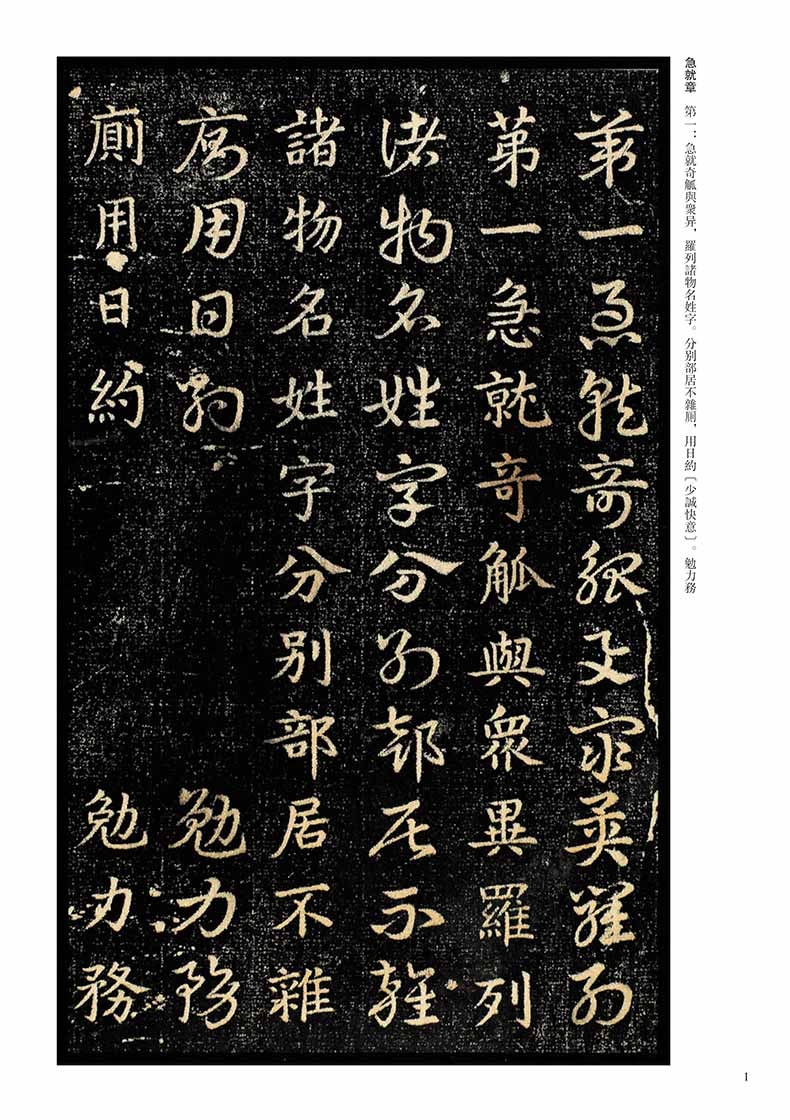 急就章　第一：急就奇觚與衆异，羅列諸物名姓字。分别部居不雜厠，用日約〔少誠快意〕。勉力務
第一急就奇觚與衆異羅列
第一急就奇觚與衆異羅列
諸物名姓字分别部居不雜
諸物名姓字分别部居不雜
廁用日約　勉力務
廁用日約　勉力務
1